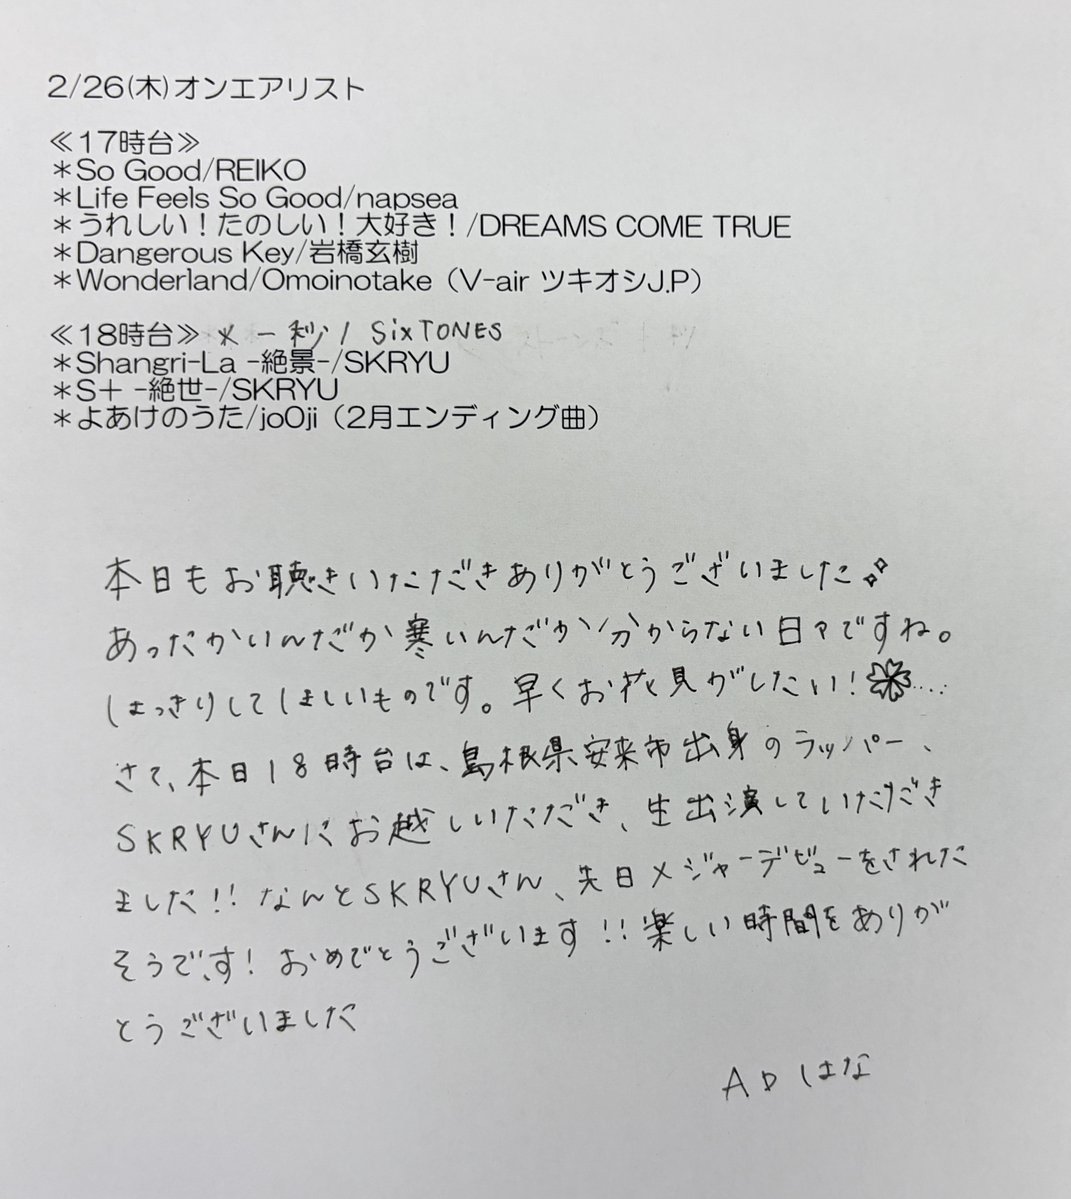 2/26(木)オンエアリスト
≪17時台≫
＊So Good/REIKO
＊Life Feels So Good/napsea
＊うれしい！たのしい！大好き！/DREAMS COME TRUE
＊Dangerous Key/岩橋玄樹
＊Wonderland/Omoinotake（V-air ツキオシJ.P）
≪18時台≫ * 一秒 / SixTONES
＊Shangri-La -絶景-/SKRYU
＊S＋ -絶世-/SKRYU
＊よあけのうた/jo0ji（2月エンディング曲）
本日もお聴きいただきありがとうございました
あったかいんだか寒いんだか分からない日々ですね。
はっきりしてほしいものです。早くお花見がしたい！....
さて、本日18時台は、島根県安来市出身のラッパー、
SKRYUさんにお越しいただき、生出演していただき
ました!! なんとSKRYUさん、先日メジャーデビューをされた
そうです！おめでとうございます!! 楽しい時間をありが
とうございました
ADはな